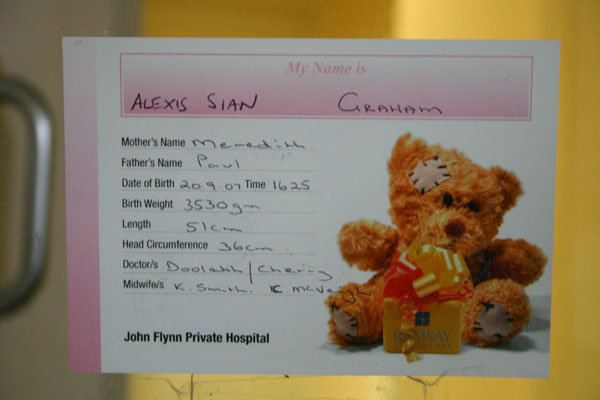 My Name is
ALEXIS SIAN GRAHAM
Mother's Name Meredith
Father's Name Paul
Date of Birth 20.9.07 Time 1625
Birth Weight 3530gm
Length 51cm
Head Circumference 36cm
Doctor/s Doolabh / Cherry
Midwife/s K. Smith. K. McVeigh
RAMSAY
HEALTH CARE
John Flynn Private Hospital